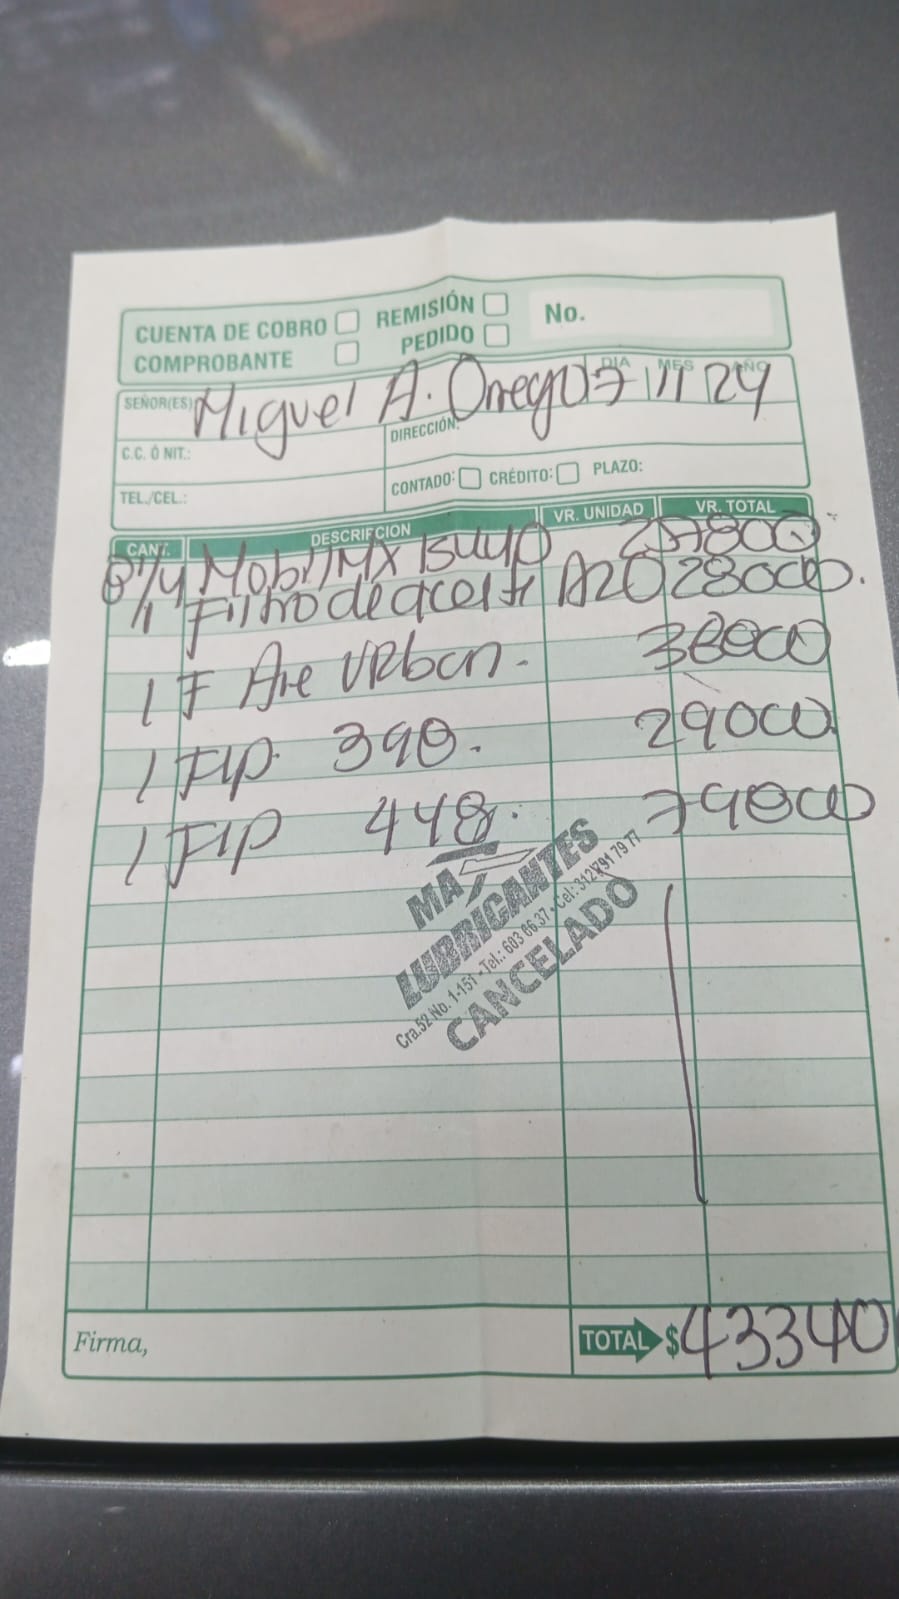 CUENTA DE COBRO REMISIÓN No.
COMPROBANTE PEDIDO
SEÑOR(ES) Miguel A. Orrego DIA MES AÑO 7 11 24
C.C. Ó NIT.: DIRECCIÓN:
TEL./CEL.: CONTADO: CRÉDITO: PLAZO:
CANT. DESCRIPCION VR. UNIDAD VR. TOTAL
1/4 Mobil MX 15W40
1 Filtro de aceite A20 28000.
1 F Aire Urban. 38000
1 FIP. 390. 29000
1 FIP 448. 79800
MA
LUBRICANTES
Cra.52 No. 1-151 - Tel.: 603 66 37 - Cel: 312 791 79 77
CANCELADO
Firma, TOTAL $ 433340